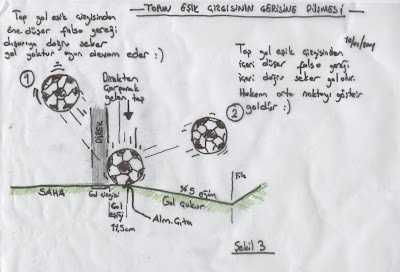 TOPUN EŞİK ÇİZGİSİNİN GERİSİNE DÜŞMESİ
Top gol eşik çizgisinden
öne düşer falso gereği
dışarıya doğru seker
gol yoktur oyun devam eder :)
1
Direkten
Çarparak
gelen top
Top gol eşik çizgisinden
içeri düşer falso gereği
içeri doğru seker gol olur.
Hakem orta noktayı gösterir
goldür :)
2
DİREK
File
SAHA
Gol çizgisi
Gol
eşiği
11,5cm
%5 eğim
Gol çukuru
Alm. Çıta
Şekil 3